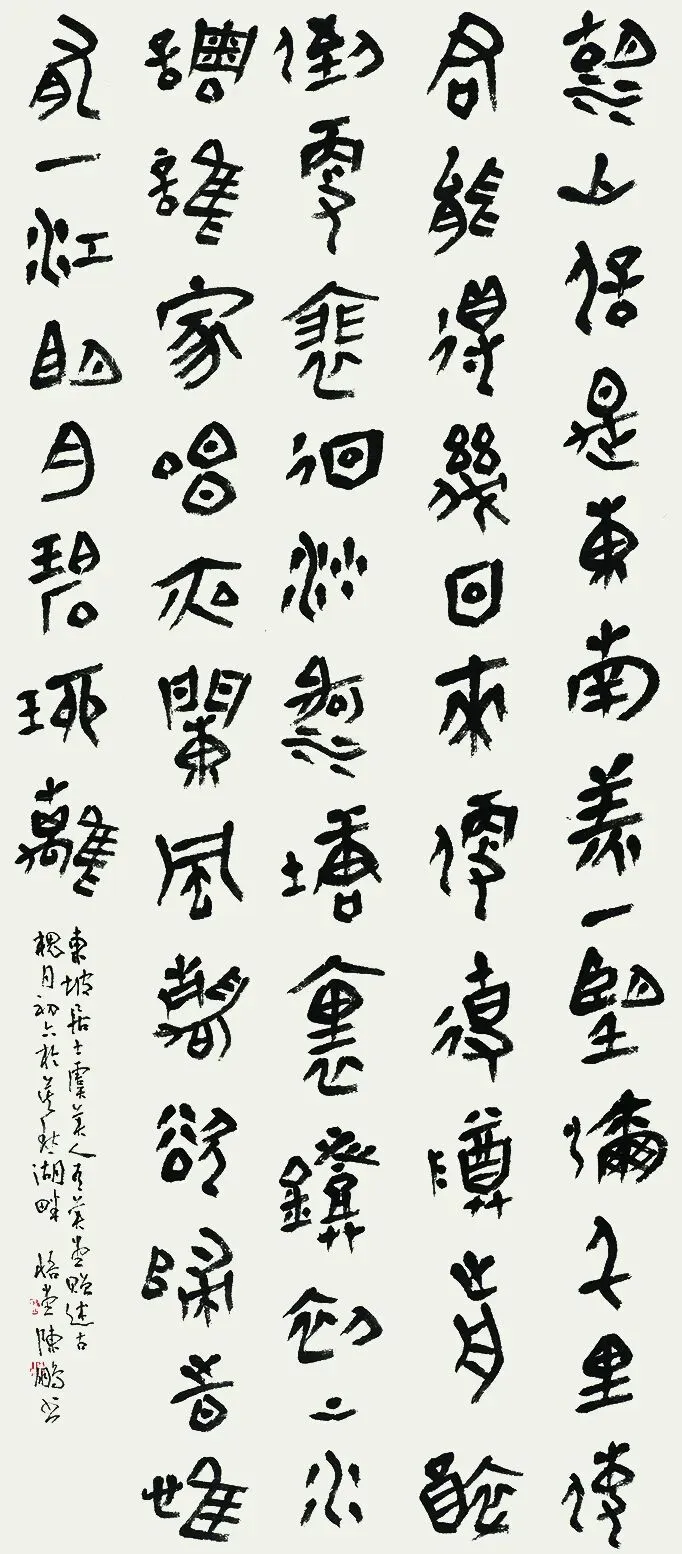 湖山信是東南美一望彌千里使
君能得幾回來便使樽前醉
倒更裴徊沙河塘裏鐙初上水
調誰家唱夜闌風靜欲歸時惟
有一江明月碧琉璃
東坡居士虞美人有美堂贈述古
槐月初六於莫愁湖畔 堂陳鵬書